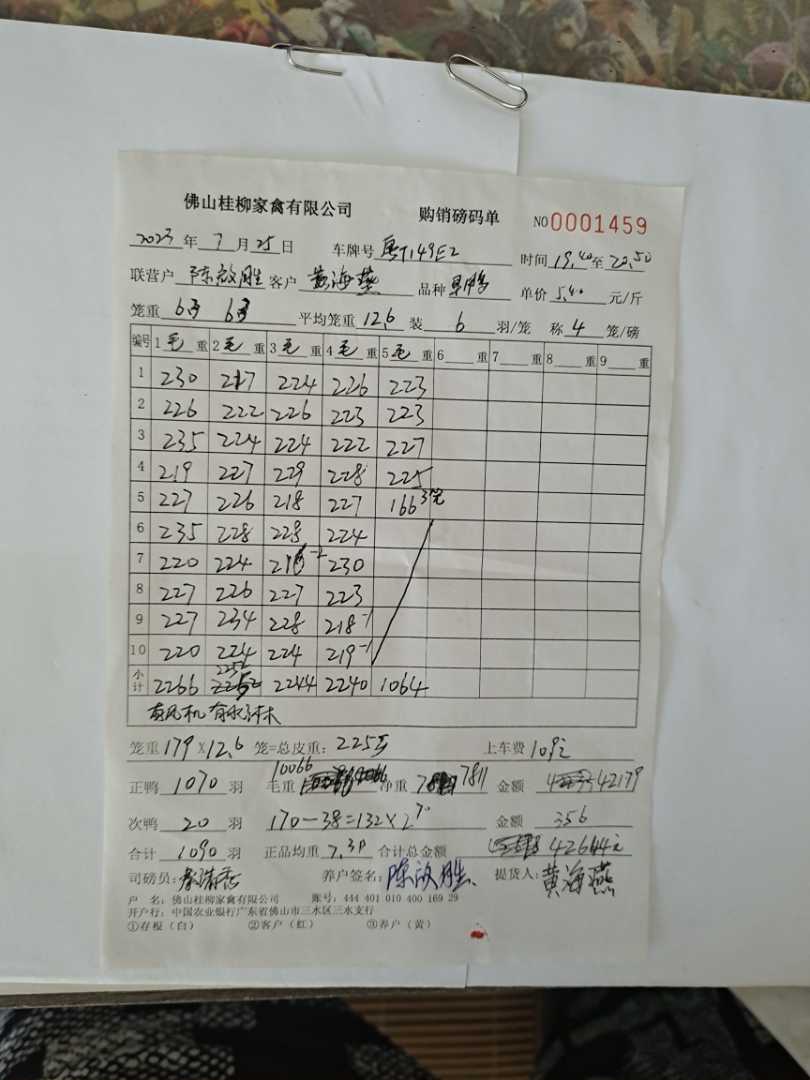 佛山桂柳家禽有限公司 购销磅码单 NO 0001459
2023年7月25日 车牌号 粤T149E2 时间 19.40至20.50
联营户 陈啟胜 客户 黄海燕 品种 单价 5.40 元/斤
笼重 63 63 平均笼重 12.6 装 6 羽/笼 称 4 笼/磅
编号 1毛重 2毛重 3毛重 4毛重 5毛重 6 重 7 重 8 重 9 重
1 230 217 224 226 223
2 226 222 226 223 223
3 235 224 224 222 227
4 219 227 229 228 225
5 227 226 218 227 166 3笼
6 235 228 228 224
7 220 224 216 -2 230
8 227 226 227 223
9 227 234 228 218 -1
10 220 224 224 219 -1
小计 2266 2252 2244 2240 1064
有风机 有水淋
笼重 179 X 12.6 笼=总皮重: 2255 上车费 109元
正鸭 1070 羽 毛重 10066 净重 7811 金额 42179
次鸭 20 羽 170-38=132×2.70 金额 356
合计 1090 羽 正品均重 7.30 合计总金额 42644元
司磅员: 养户签名: 陈啟胜 提货人: 黄海燕
户 名: 佛山桂柳家禽有限公司 账号: 444 401 010 400 169 29
开户行: 中国农业银行广东省佛山市三水区三水支行
①存根(白) ②客户(红) ③养户(黄)